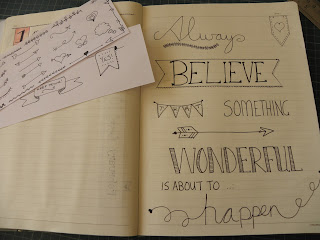 Always
BELIEVE
SOMETHING
WONDERFUL
IS ABOUT TO ...
happen
1